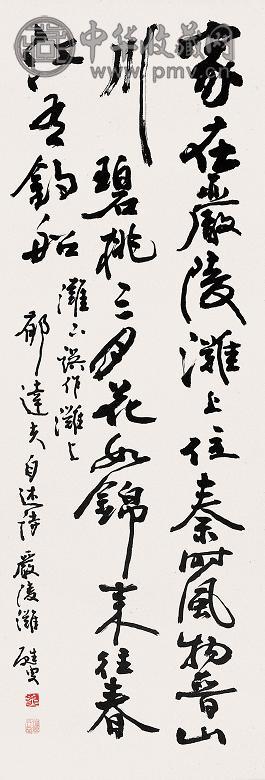 中华收藏网
www.pmv.cn
家在嚴陵灘上住秦時風物晉山
川碧桃三月花如錦來往春
江有釣船
灘下誤作灘上
郁達夫自述詩 嚴陵灘